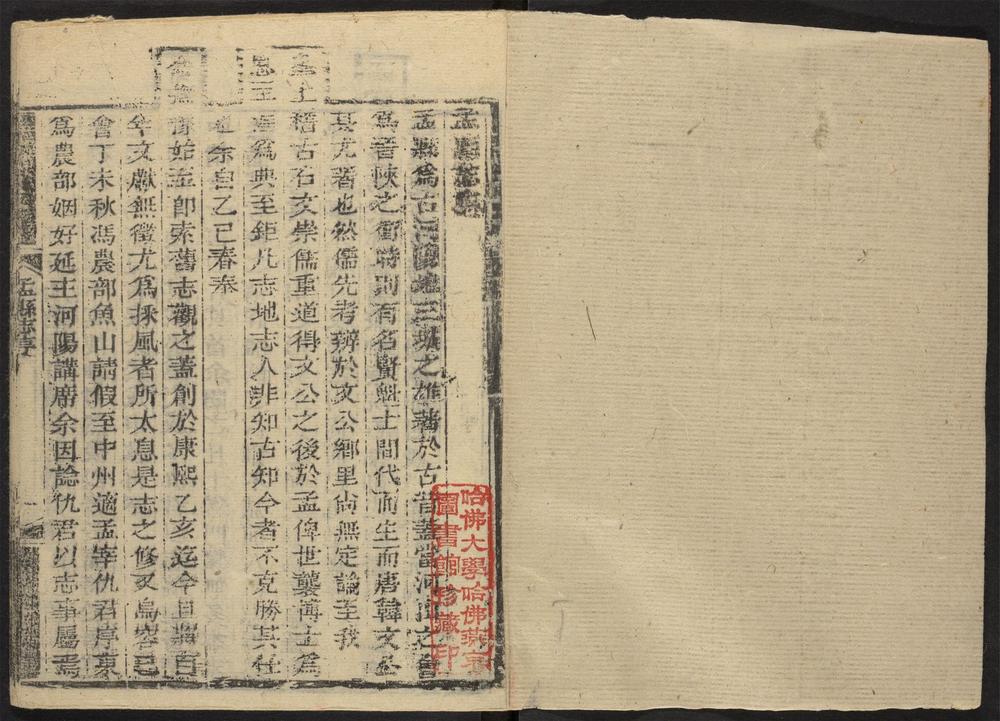 孟縣志序
孟縣爲古河陽地三城之雄著於古昔蓋當河山之會
爲晉陜之衝時則有名賢魁士間代而生而唐韓文公
其尤著也然儒先考辨於文公鄉里尚無定論至我
皇上稽古右文崇儒重道得文公之後於孟俾世襲博士爲
恩至渥爲典至鉅凡志地志人非知古知今者不克勝其任
也余自乙巳春奉
命撫豫始至即索舊志觀之蓋創於康熙乙亥迄今且將百
年文獻無徵尤爲採風者所太息是志之修又烏容已
會丁未秋馮農部魚山請假至中州適孟宰仇君序東
爲農部姻好延主河陽講席余因諗仇君以志事屬焉
孟縣志序
一
哈佛大學哈佛燕京
圖書館珍藏印